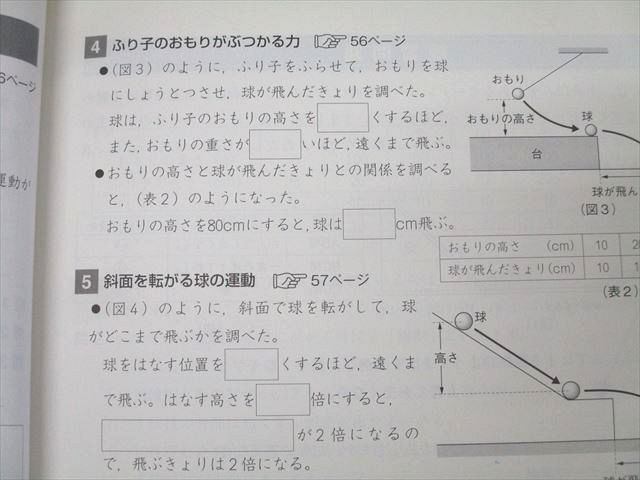 6ページ
運動が
4 ふり子のおもりがぶつかる力 56ページ
●(図3)のように,ふり子をふらせて,おもりを球
にしょうとつさせ,球が飛んだきょりを調べた。
球は,ふり子のおもりの高さを くするほど,
また,おもりの重さが いほど,遠くまで飛ぶ。
●おもりの高さと球が飛んだきょりとの関係を調べる
と,(表2)のようになった。
おもりの高さを80cmにすると,球は cm飛ぶ。
おもり
おもりの高さ
球
台
球が飛ん
(図3)
おもりの高さ (cm) 10
球が飛んだきょり(cm) 10
(表2)
5 斜面を転がる球の運動 57ページ
●(図4)のように,斜面で球を転がして,球
がどこまで飛ぶかを調べた。
球をはなす位置を くするほど,遠くま
で飛ぶ。はなす高さを 倍にすると,
が2倍になるの
で,飛ぶきょりは2倍になる。
球
高さ